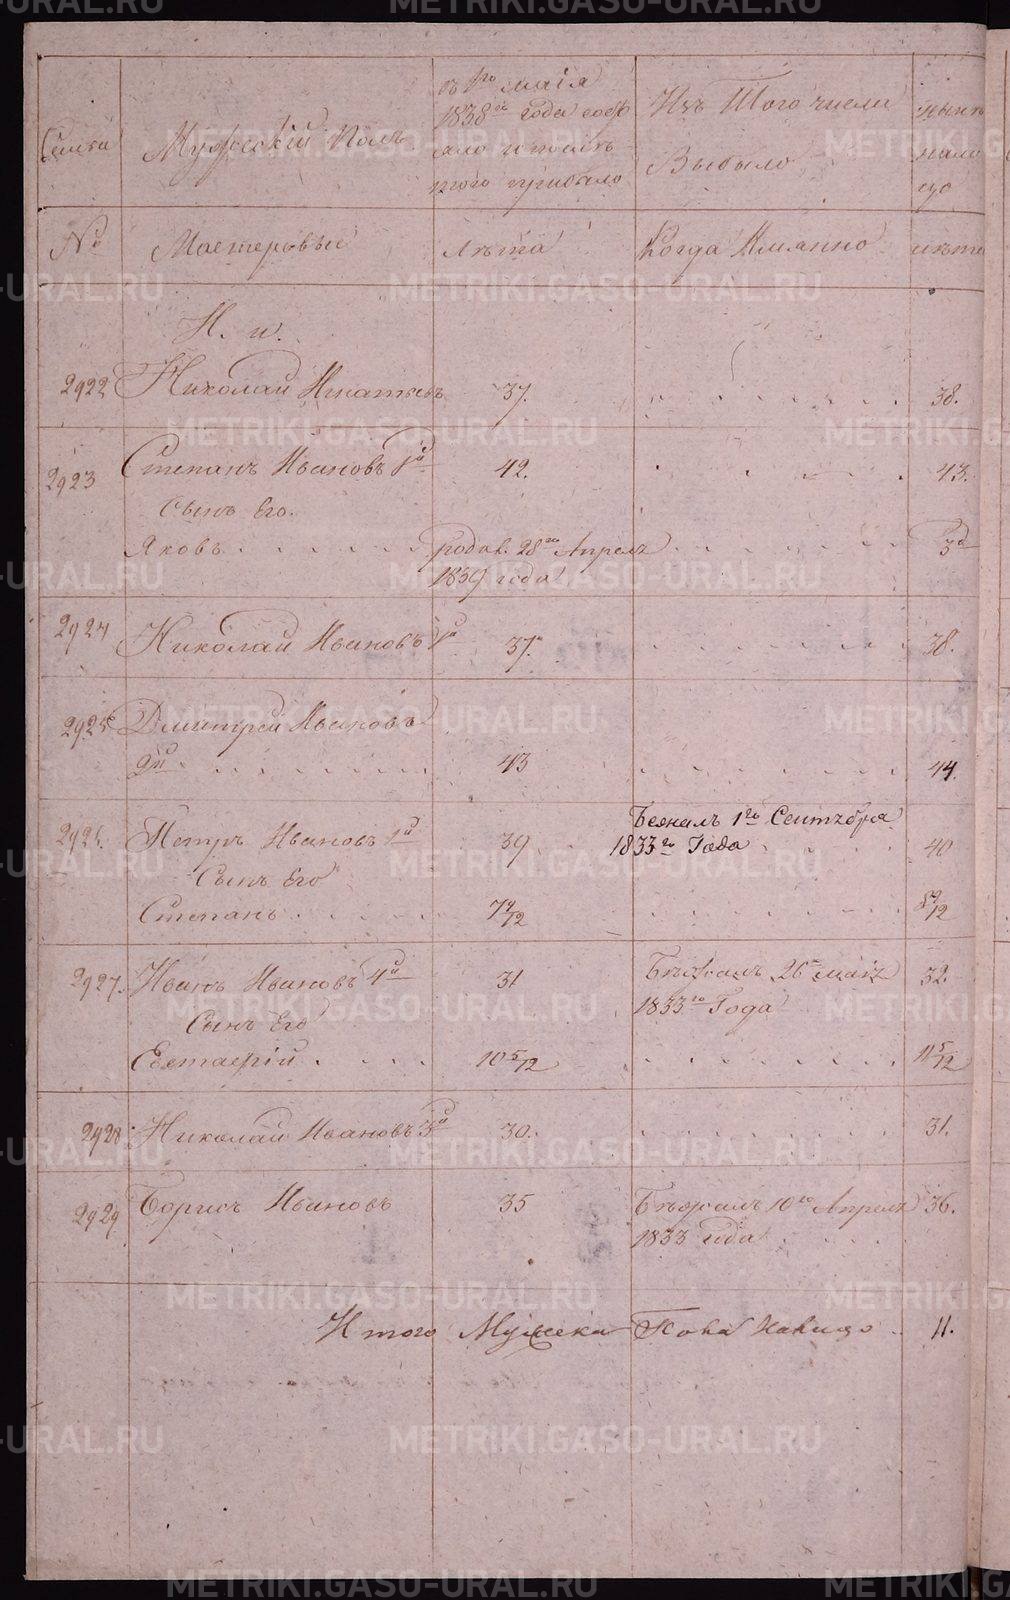 Семьи
Мужескій Полъ
съ 1го маія
1838го года
того прибыло
Изъ Того числа
Выбыло
нынѣ
налицо
№
Мастеровые
Лѣта
Когда Имянно
лѣта
Н. и.
2922 Николай Игнатьевъ 37. 38.
2923 Степанъ Ивановъ 1й 42. 43.
Сынъ Его.
Яковъ родив. 28го Апреля
1839 года
2924 Николай Ивановъ 1й 37. 38.
2925 Дмитрей Ивановъ
2й 43 44.
2926. Петръ Ивановъ 1й 39 Бежалъ 1го Сентября 40
1833го Года
Сынъ Его
Степанъ
2927. Иванъ Ивановъ 4й 31 Бѣжалъ 26го маія 32.
1833го Года
Сынъ Его
Евстафій 10 5/12 11 5/12
2928 Николай Ивановъ 3й 30. 31.
2929 Борисъ Ивановъ 35 Бѣжалъ 10го Апреля 36.
1833 года
Итого Мужска Пола Налицо 11.
METRIKI.GASO-URAL.RU